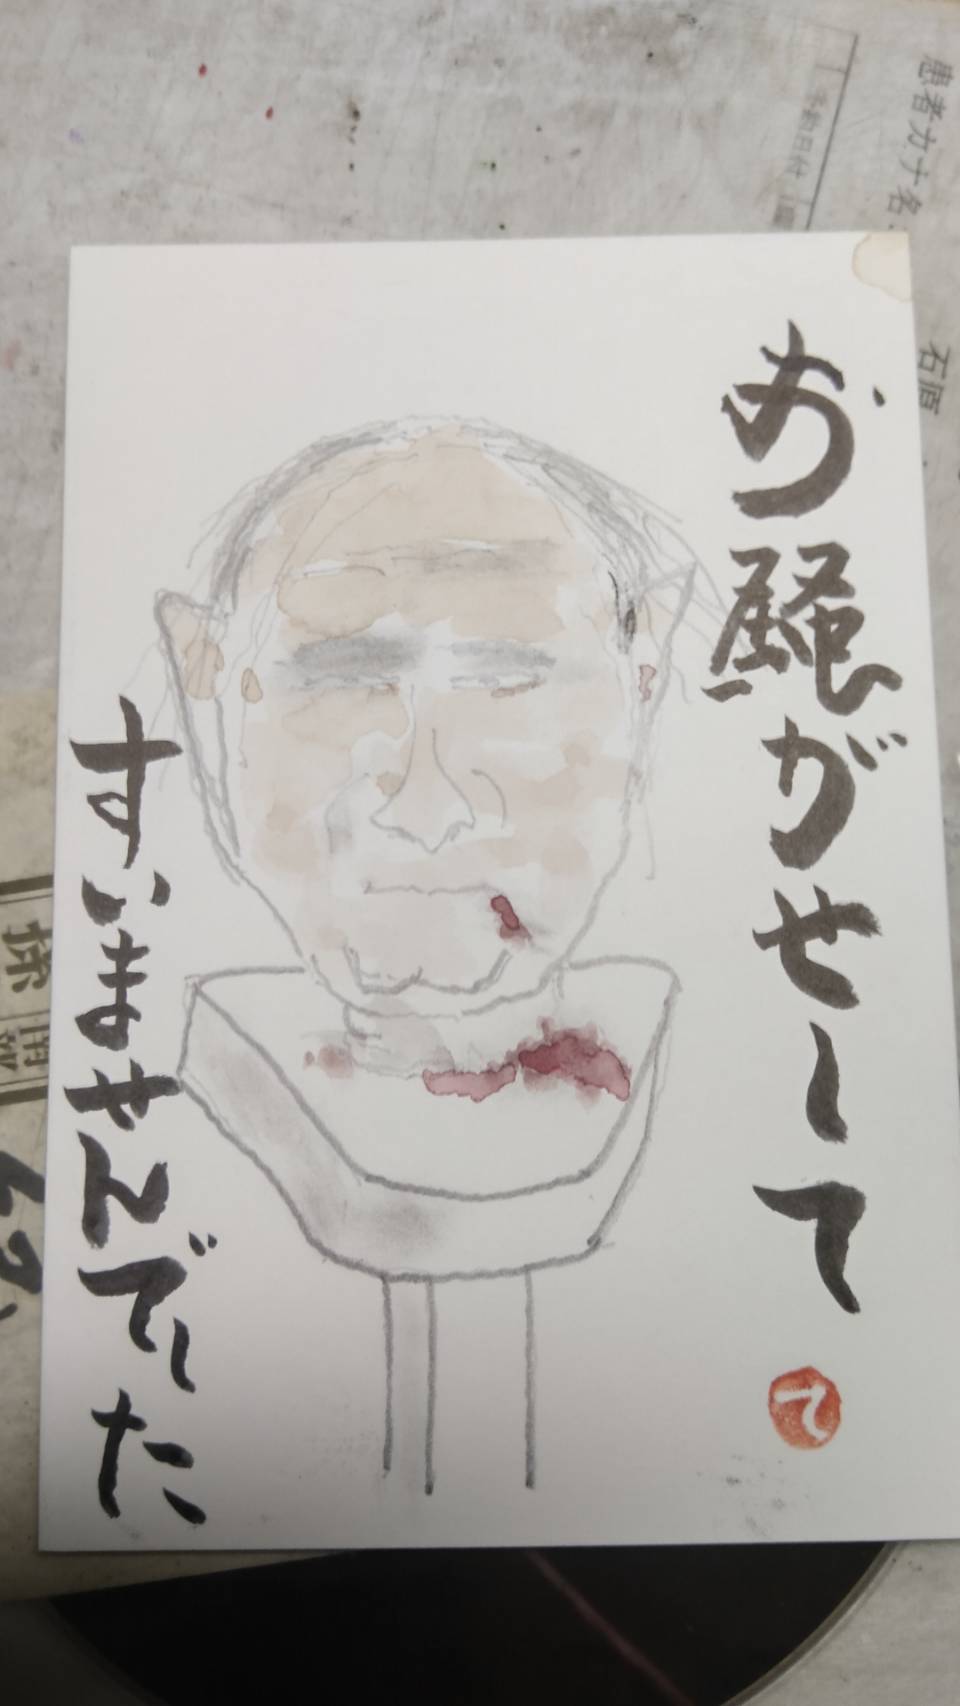 お騒がせして
すいませんでした
て
患者カナ名
石原